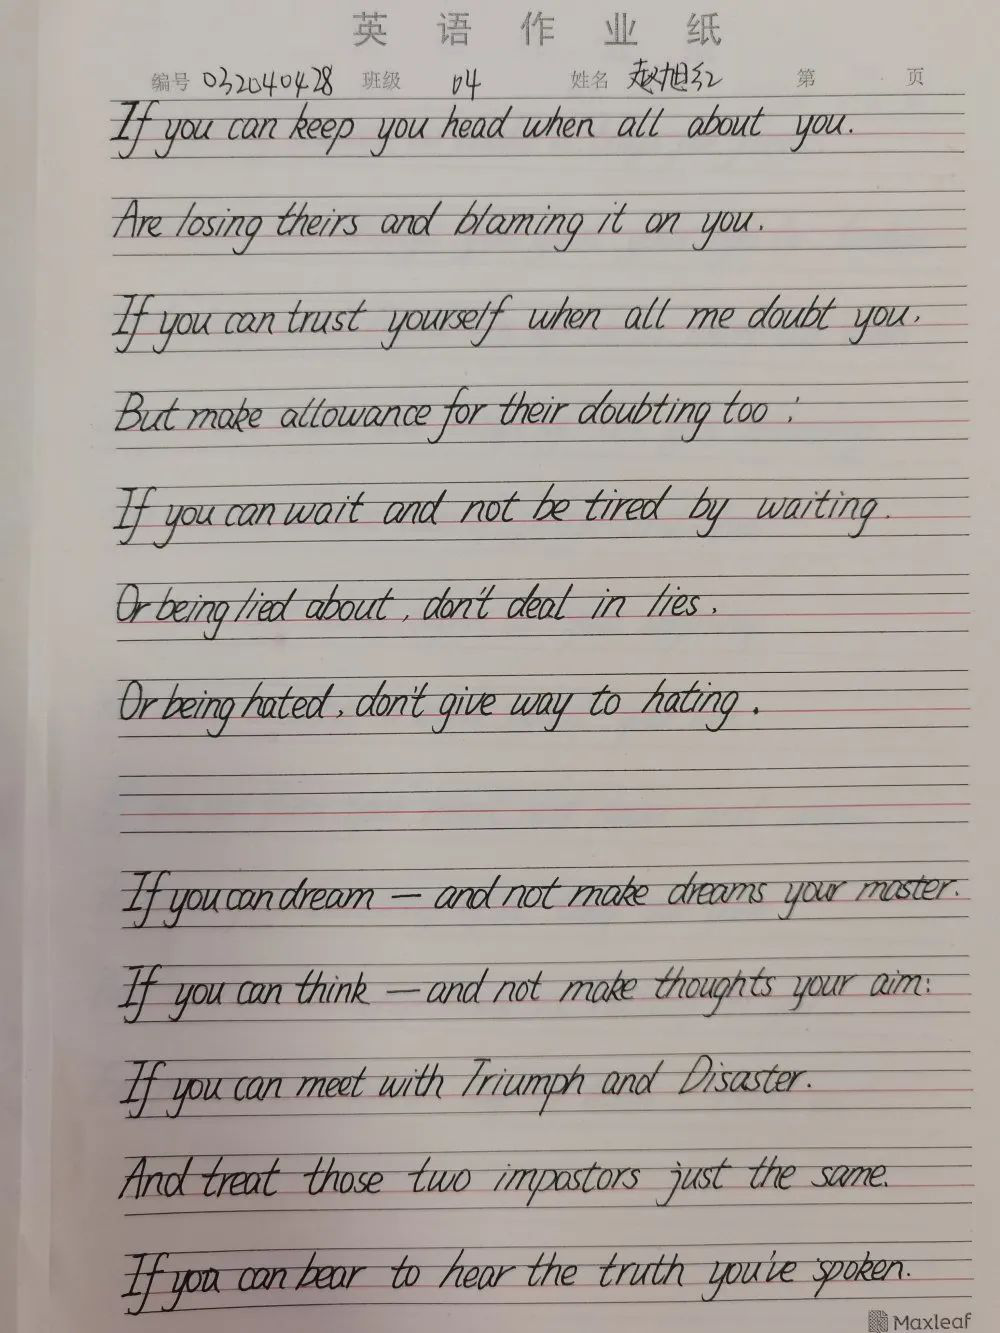 英语作业纸
编号 032040428 班级 04 姓名 赵旭红 第 页
If you can keep you head when all about you.
Are losing theirs and blaming it on you.
If you can trust yourself when all me doubt you,
But make allowance for their doubting too ;
If you can wait and not be tired by waiting.
Or being lied about, don't deal in lies,
Or being hated, don't give way to hating.
If you can dream — and not make dreams your master.
If you can think — and not make thoughts your aim:
If you can meet with Triumph and Disaster.
And treat those two impostors just the same.
If you can bear to hear the truth you've spoken.
Maxleaf